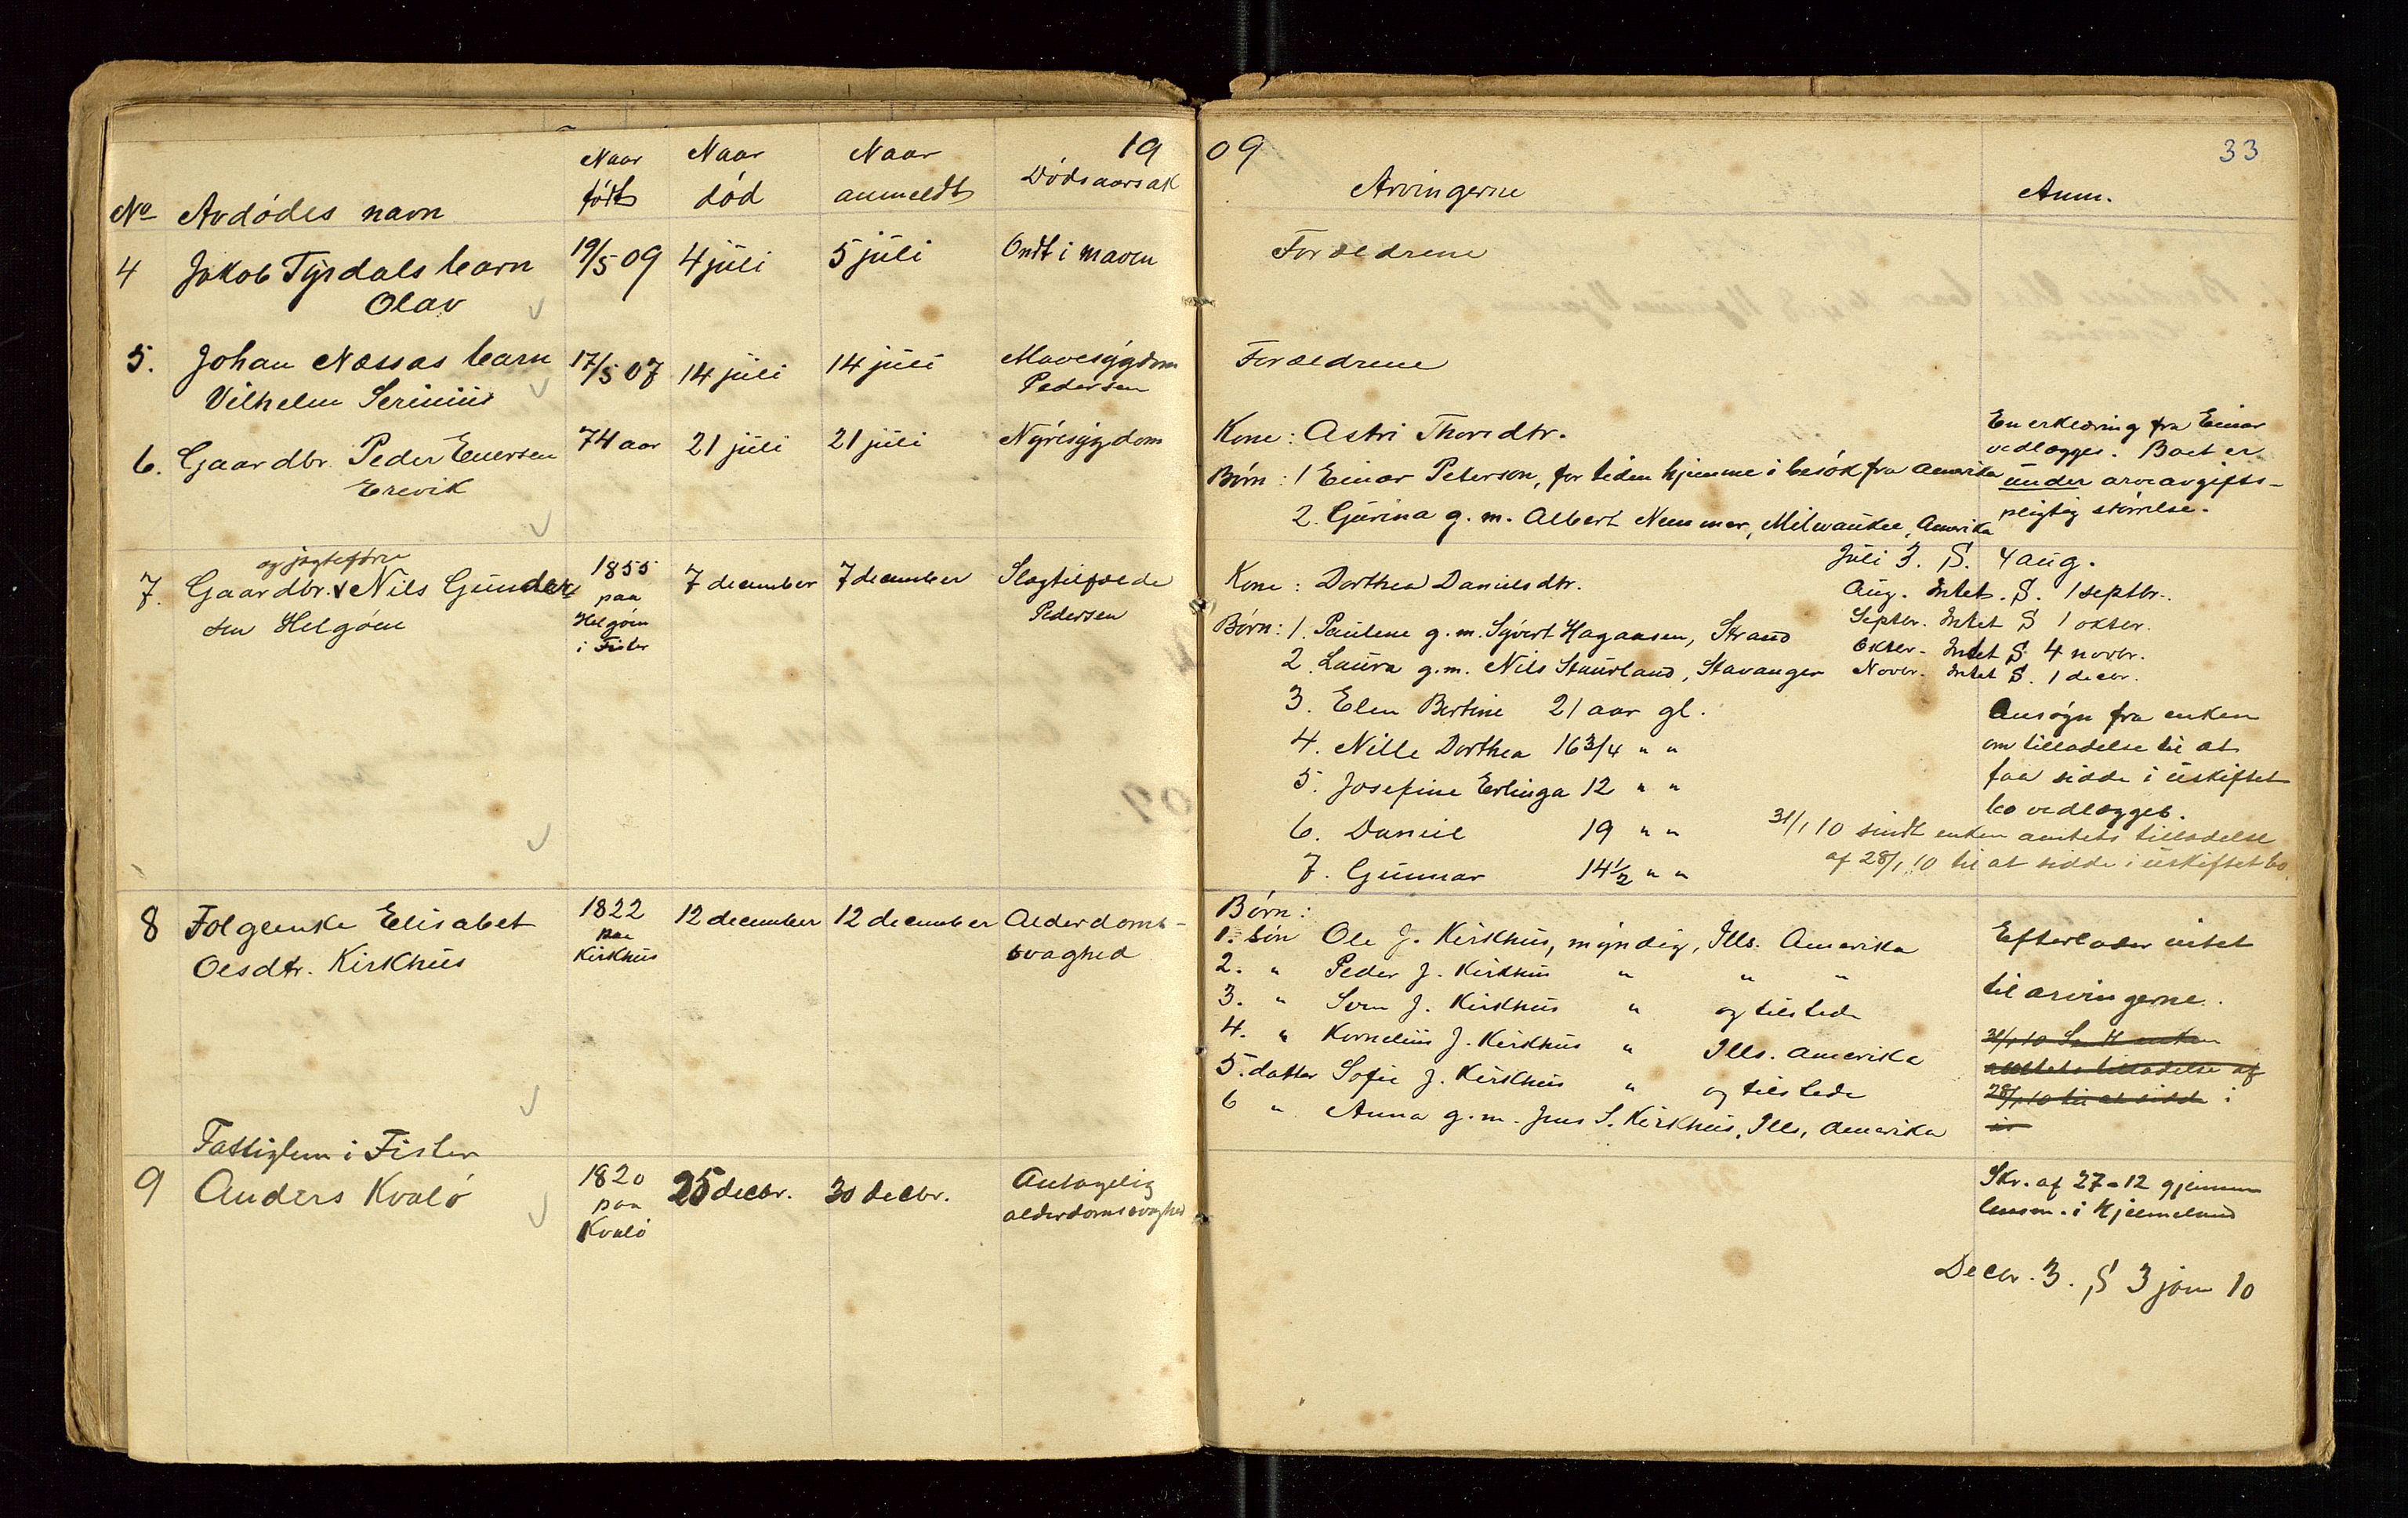 19
09
33
No Avdødes navn
Naar født
Naar død
Naar anmeldt
Dødsaarsak
Arvingerne
Anm.
4 Jakob Tysdals barn 19/5 09 4 juli 5 juli Ondt i maven Forældrene
Olav
5. Johan Næssas barn 17/5 07 14 juli 14 juli Mavesygdom Forældrene
Vilhelm Pedersen
6. Gaardbr. Peder Enersen 74 aar 21 juli 21 juli Nyresygdom Kone: Astri Thoredtr.
Erevik
Børn: 1 Einar Peterson, for tiden hjemme i besøk fra Amerika
2. Gurina g. m. Albert Nummer, Milwaukee, Amerika
En erklæring fra Einar
vedlægges. Boet er
under arveavgifts-
pligtig størrelse.
Juli 3. S. 4 aug.
Aug. Intet. S. 1 septbr.
Septbr. Intet S 1 oktbr.
Oktbr. Intet S. 4 novbr.
Novbr. Intet S. 1 decbr.
og jagtefører
7. Gaardbr. v Nils Gunder- 1855 7 december 7 december Slagtilfælde Kone: Dorthea Danielsdtr.
sen Helgøen paa Pedersen
Helgøen
i Fister
Børn: 1. Pauline g. m. Syvert Hagansen, Strand
2. Laura g. m. Nils Staurland, Stavanger
3. Elen Bertine 21 aar gl.
4. Nille Dorthea 16 3/4 " "
5. Josefine Erlinga 12 " "
6. Daniel 19 " "
7. Gunnar 14 1/2 " "
Ansøgn fra enken
om tilladelse til at
faa sidde i uskiftet
bo vedlægges.
31/1 10 sendt enken amtets tilladelse
af 28/1 10 til at sidde i uskiftet bo.
8 Folgeenke Elisabet 1822 12 december 12 december Alderdoms-
Olesdtr. Kirkhus paa svaghed
Kirkhus
Børn:
1. søn Ole J. Kirkhus, myndig, Ills. Amerika
2. " Peder J. Kirkhus " " "
3. " Sven J. Kirkhus " og tilstede
4. " Kornelius J. Kirkhus " Ills. Amerika
5. datter Sofie J. Kirkhus " og tilstede
6 " Anna g. m. Jens S. Kirkhus, Ills, Amerika
Efterlader intet
til arvingerne.
31/1 10 enken
amtets tilladelse af
28/1 10 til at sidde i
Fattiglem i Fister
9 Anders Kvalø 1820 25 decbr. 30 decbr. Antagelig
paa alderdomssvaghed
Kvalø
Skr. af 27-12 gjennem
lensm. i Hjelmeland
Decbr. 3. S 3 jan 10